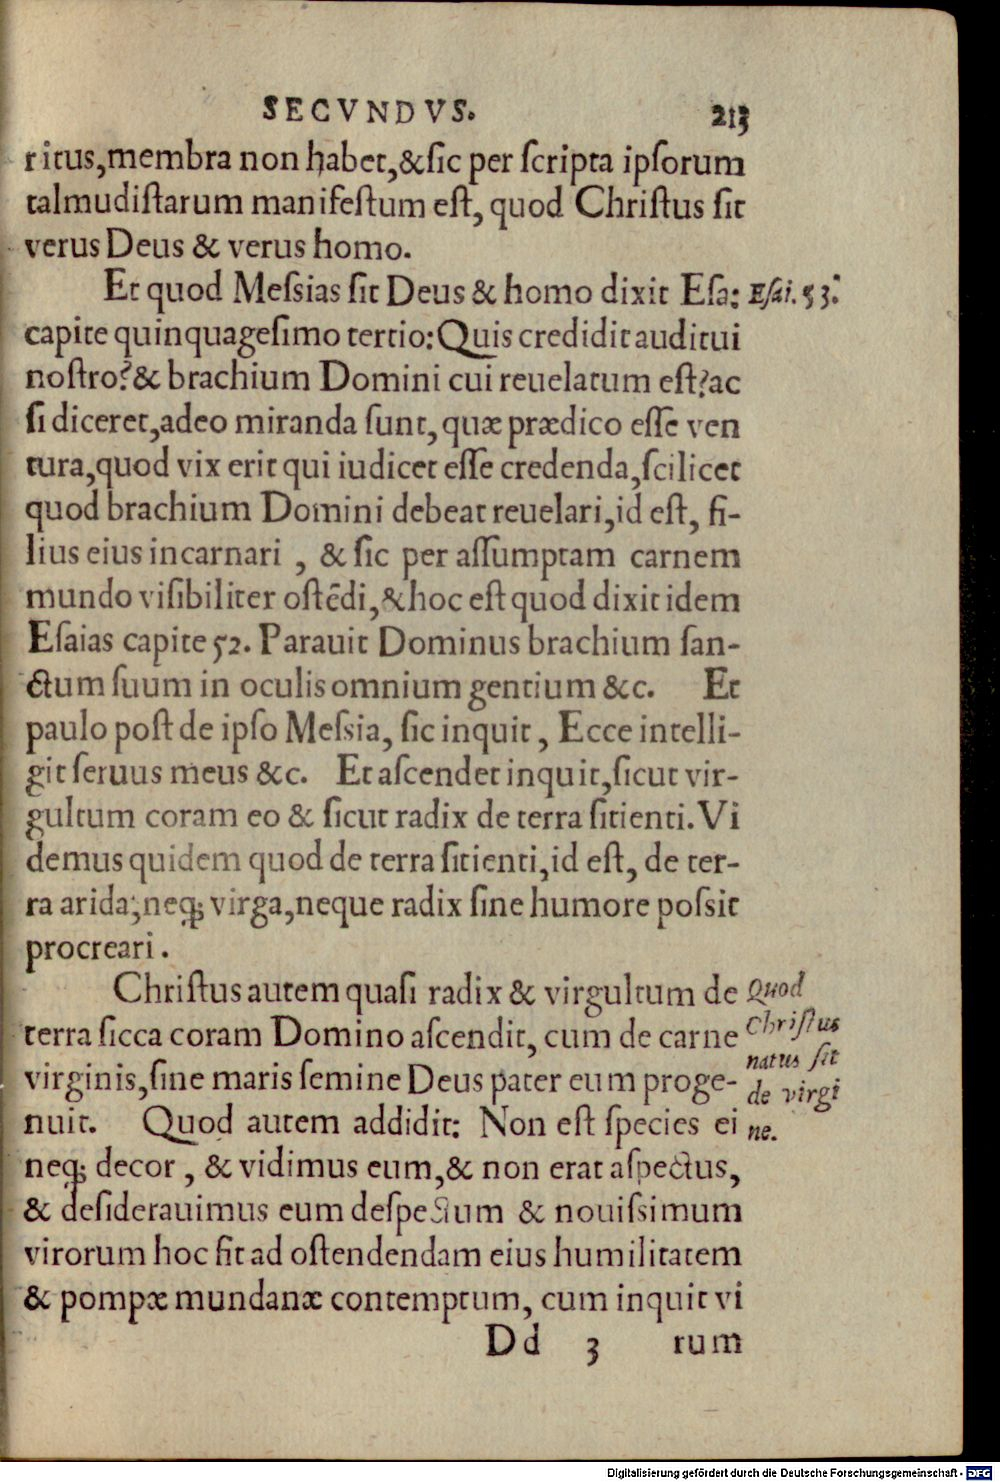 SECVNDVS. 213
ritus,membra non habet,&ſic per ſcripta ipſorum
talmudiſtarum manifeſtum eſt, quod Chriſtus ſit
verus Deus & verus homo.
Et quod Meſsias ſit Deus & homo dixit Eſa: Eſai. 53.
capite quinquageſimo tertio: Quis credidit auditui
noſtro?& brachium Domini cui reuelatum eſt?ac
ſi diceret,adeo miranda ſunt, quæ prædico eſſe ven
tura,quod vix erit qui iudicet eſſe credenda,ſcilicet
quod brachium Domini debeat reuelari,id eſt, fi-
lius eius incarnari , & ſic per aſſumptam carnem
mundo viſibiliter oſtēdi,&hoc eſt quod dixit idem
Eſaias capite 52. Parauit Dominus brachium ſan-
ctum ſuum in oculis omnium gentium &c. Et
paulo poſt de ipſo Meſsia, ſic inquit , Ecce intelli-
git ſeruus meus &c. Et aſcendet inquit,ſicut vir-
gultum coram eo & ſicut radix de terra ſitienti. Vi
demus quidem quod de terra ſitienti,id eſt, de ter-
ra arida,neq; virga,neque radix ſine humore poſsit
procreari .
Chriſtus autem quaſi radix & virgultum de Quod
terra ſicca coram Domino aſcendit, cum de carne Chriſtus
virginis,ſine maris ſemine Deus pater eum proge- natus ſit de virgi
nuit. Quod autem addidit: Non eſt ſpecies ei ne.
neq; decor , & vidimus eum,& non erat aſpectus,
& deſiderauimus eum deſpectum & nouiſsimum
virorum hoc fit ad oſtendendam eius humilitatem
& pompæ mundanæ contemptum, cum inquit vi
Dd 3 rum
Digitalisierung gefördert durch die Deutsche Forschungsgemeinschaft - DFG